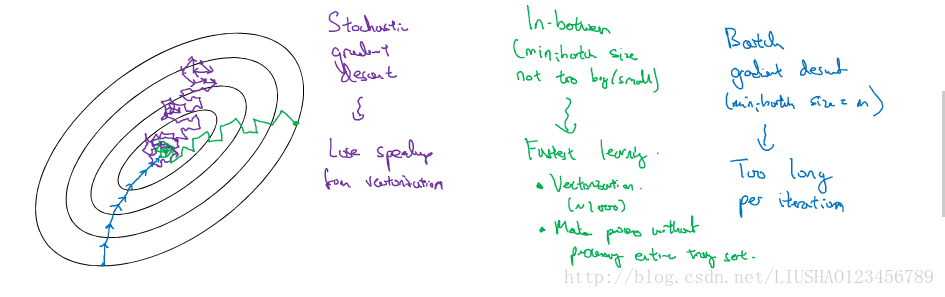 Stochastic
gradient
descent
Lose speedup
from vectorization
In-between
(mini-batch size
not too big/small)
Fastest learning.
• Vectorization.
(~1000)
• Make progress without
processing entire training set.
Batch
gradient descent
(mini-batch size = m)
Too long
per iteration
http://blog.csdn.net/LIUSHAO123456789